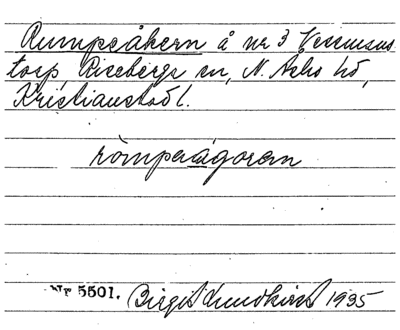 Rumpeåkern å nr 3 Vessmans
torp, Riseberga sn, N. Åsbo hd,
Kristianstads l.
rompaågoren
Nr 5501. Birgit Lundkvist 1935